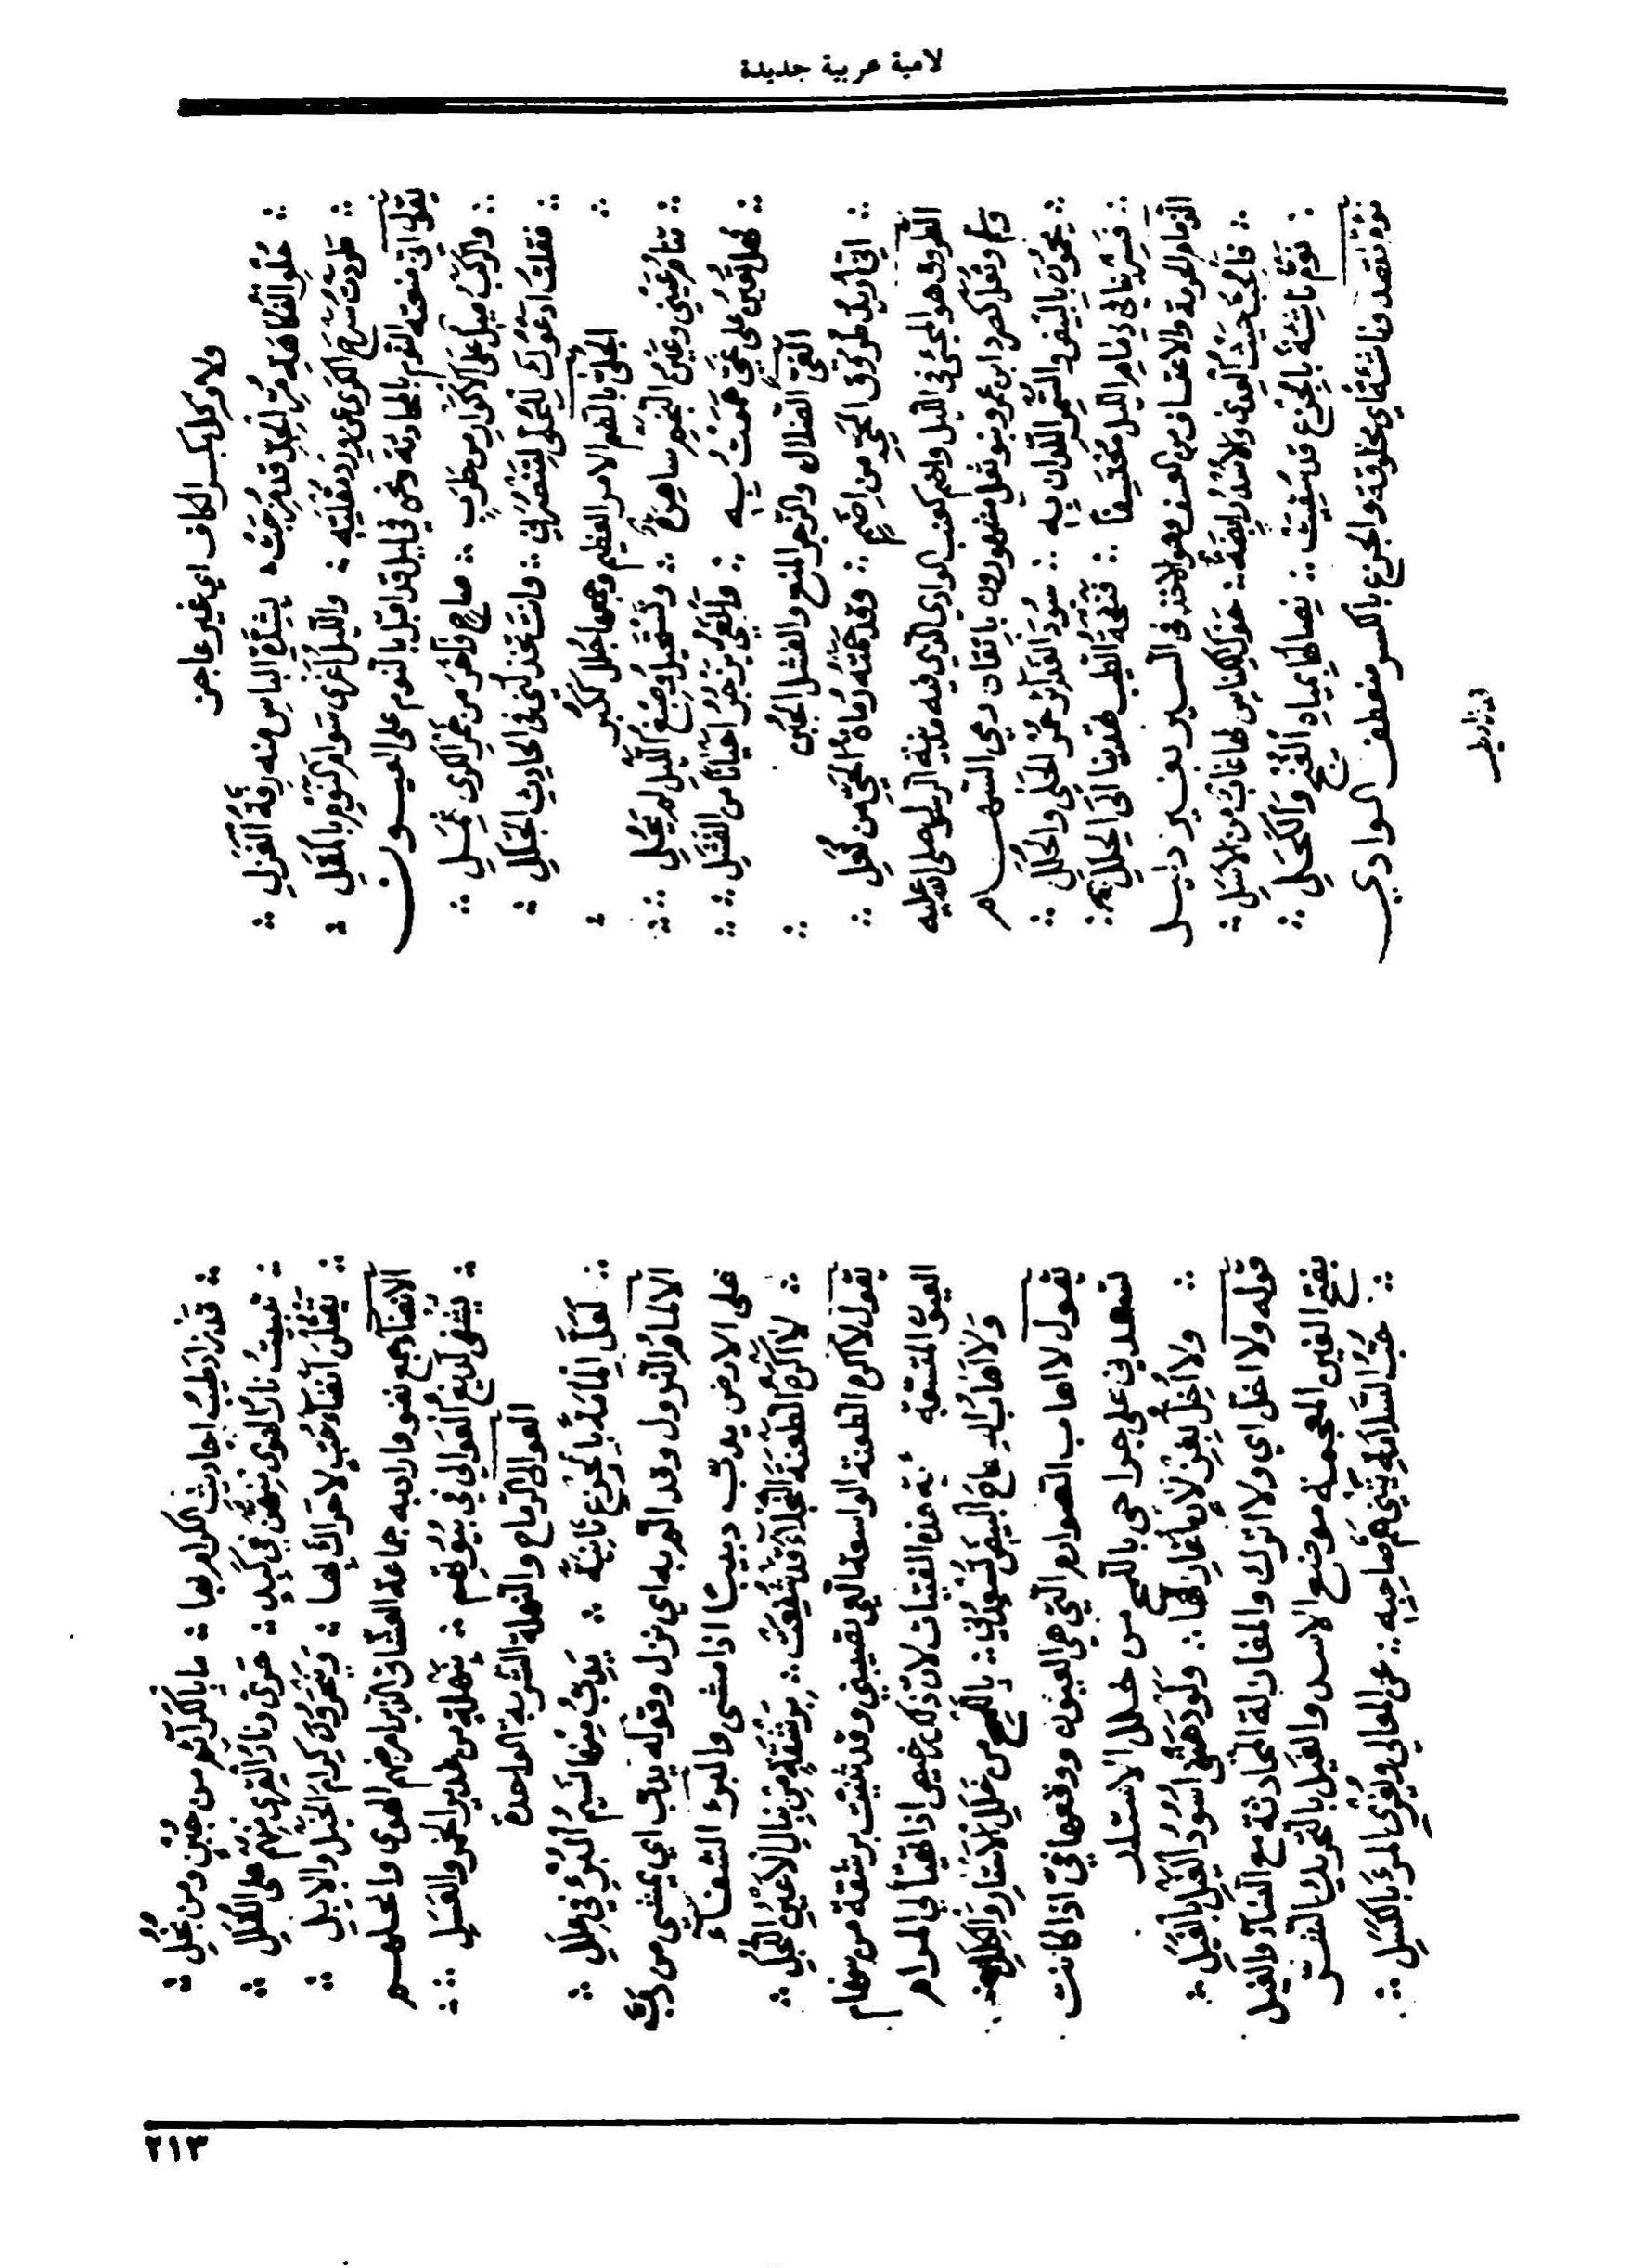 لامية عربية جديدة
ولا وكل بكسر الكاف اي غير عاجز
حُلْوُ الفُكاهَةِ مُرُّ الجِدِّ قد مُزِجَتْ ∴ بشِدَّةِ الباسِ منه رِقَّةُ الغَزَلِ
طَرَدْتُ سَرْحَ الكَرى عن وِرْدِ مُقْلَتِه ∴ واللَّيْلُ أغْرى سَوامَ النَّوْمِ بالمُقَلِ
يقول اني منعته النوم بالمحادثة ونحن في ليل قد اقبل بالنوم على العيون
والرَّكْبُ مِيلٌ على الأكْوارِ من طَرِبٍ ∴ صاحٍ وآخَرَ من خَمْرِ الكَرى ثَمِلِ
فقلتُ أدْعوكَ للجُلَّى لِتَنْصُرَني ∴ وأنتَ تَخْذُلُني في الحادِثِ الجَلَلِ
الجلّى بالضم الامر العظيم وجمعها جُلَل ككُبَر
تنامُ عَيْني وعَيْنُ النَّجْمِ ساهِرَةٌ ∴ وتَسْتَحيلُ وصِبْغُ اللَّيْلِ لم يَحُلِ
فهل تُعينُ على غَيٍّ هَمَمْتُ بِه ∴ والغَيُّ يَزْجُرُ أحْيانًا من الفَشَلِ
الغيّ الضلال والزجر المنع والفشل الجُبن
اني أُريدُ طُروقَ الحَيِّ من إضَمٍ ∴ وقد حَمَتْه رُماةُ الحَيِّ من ثُعَلِ
الطروق هو المجئ في الليل واضم كعنب الوادي الذي فيه مدينة الرسول صلى الله عليه
وسلم وثُعَل كصرد ابن عمرو بنو ثعل مشهورون باتقان رمي السهام
يحمونَ بالبيضِ والسُّمْرِ اللِّدانِ بِه ∴ سُودَ الغَدائِرِ حُمْرَ الحَلْيِ والحُلَلِ
فسِرْ بنا في ذِمامِ اللَّيْلِ مُعْتَسِفًا ∴ فنَفْحَةُ الطِّيبِ تَهْدينا الى الحِلَلِ
الذمام الحرمة والاعتساف من العسف وهو الاخذ في السير بغير دليل
فالحُبُّ حَيْثُ العِدى والأُسْدُ رابِضَةٌ ∴ حَوْلَ الكِناسِ لها غابٌ من الأسَلِ
نَؤُمُّ ناشِئَةً بالجِزْعِ قد سُقِيَتْ ∴ نِصالُها بمياهِ الغُنْجِ والكَحَلِ
نؤم نقصد وناشئة اي مخلوقة والجزع بالكسر منعطف الوادي
قد زاد طيب
قد زادَ طِيبُ أحاديثِ الكِرامِ بها ∴ ما بالكَرائِمِ من جُبْنٍ ومن بُخْلِ
تَبيتُ نارُ الهَوى منهنّ في كَبِدٍ ∴ حَرَّى ونارُ القِرى منهم على القُلَلِ
يَقْتُلْنَ أنْضاءَ حُبٍّ لا حَراكَ بها ∴ ويَنْحَرونَ كِرامَ الخَيْلِ والإبِلِ
الانضاء جمع نضو واراد به جماعة العشاق الذين امرضهم الهوى وانحلهم
يُشْفى لَديغُ العَوالي في بُيوتِهم ∴ بنَهْلَةٍ من غَديرِ الخَمْرِ والعَسَلِ
العوالي الرماح والنهلة الشربة الواحدة
لعلَّ إلمامَةً بالجِزْعِ ثانِيَةً ∴ يَدِبُّ منها نَسيمُ البُرْءِ في عِلَلي
الالمام النزول وقد المّ به اي نزل وقوله يدب اي يمشي من دَبَّ
على الارض يدب دبيبًا اذا مشى والبرء الشفاء
لا أكْرَهُ الطَّعْنَةَ النَّجْلاءَ قد شُفِعَتْ ∴ برَشْقَةٍ من نِبالِ الأعْيُنِ النُّجُلِ
يقول لا اكره الطعنة الواسعة التي تصيبني وقد ثنيت برشقة من سهام
العيون المتسعة هذه الفتيات لان ذلك رخيص اذا تهيأ لي المرام
ولا أهابُ الصِّفاحَ البيضَ تُسْعِدُني ∴ باللَّمْحِ من خَلَلِ الأسْتارِ والكِلَلِ
يقول لا اهاب الصوارم التي هي العيون ووقعها فيّ اذا كانت
تسعدني على جراحي باللمح من خلل الاستار
ولا أُخِلُّ بغِزْلانٍ أُغازِلُها ∴ ولو دَهَتْني أُسودُ الغَيْلِ بالغِيَلِ
قوله ولا اخل اي ولا اترك والمغازلة المحادثة مع النساء والغيل
بفتح الغين المعجمة موضع الاسد والغيل بالتحريك الشر
حُبُّ السَّلامَةِ يَثْني هَمَّ صاحِبِه ∴ عن المَعالي ويُغْري المَرْءَ بالكَسَلِ
٢١٣